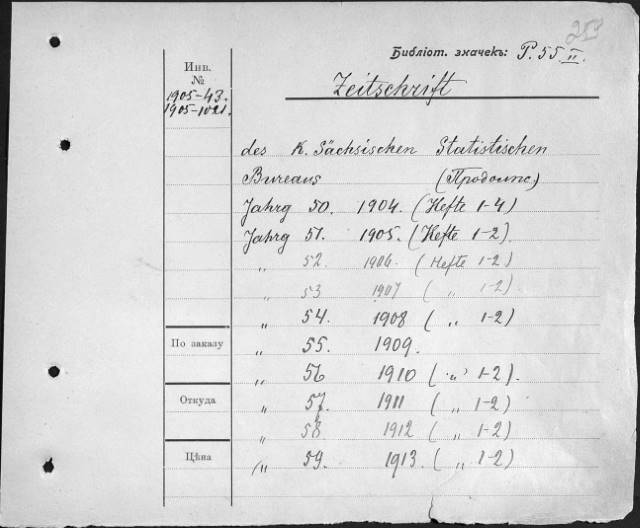 Библіот. значекъ: P. 55 II.
Инв.
№
1905-43.
1905-1021.
Zeitschrift
des K. Sächsischen Statistischen
Bureaus (Продолж.)
Jahrg 50. 1904. (Hefte 1-4)
Jahrg 51. 1905. (Hefte 1-2).
„ 52 1906. (Hefte 1-2)
„ 53 1907 ( „ 1-2)
„ 54. 1908 ( „ 1-2)
По заказу
„ 55. 1909.
„ 56 1910 ( „ 1-2).
Откуда
„ 57. 1911 ( „ 1-2)
„ 58 1912 ( „ 1-2)
Цѣна
„ 59. 1913. ( „ 1-2)